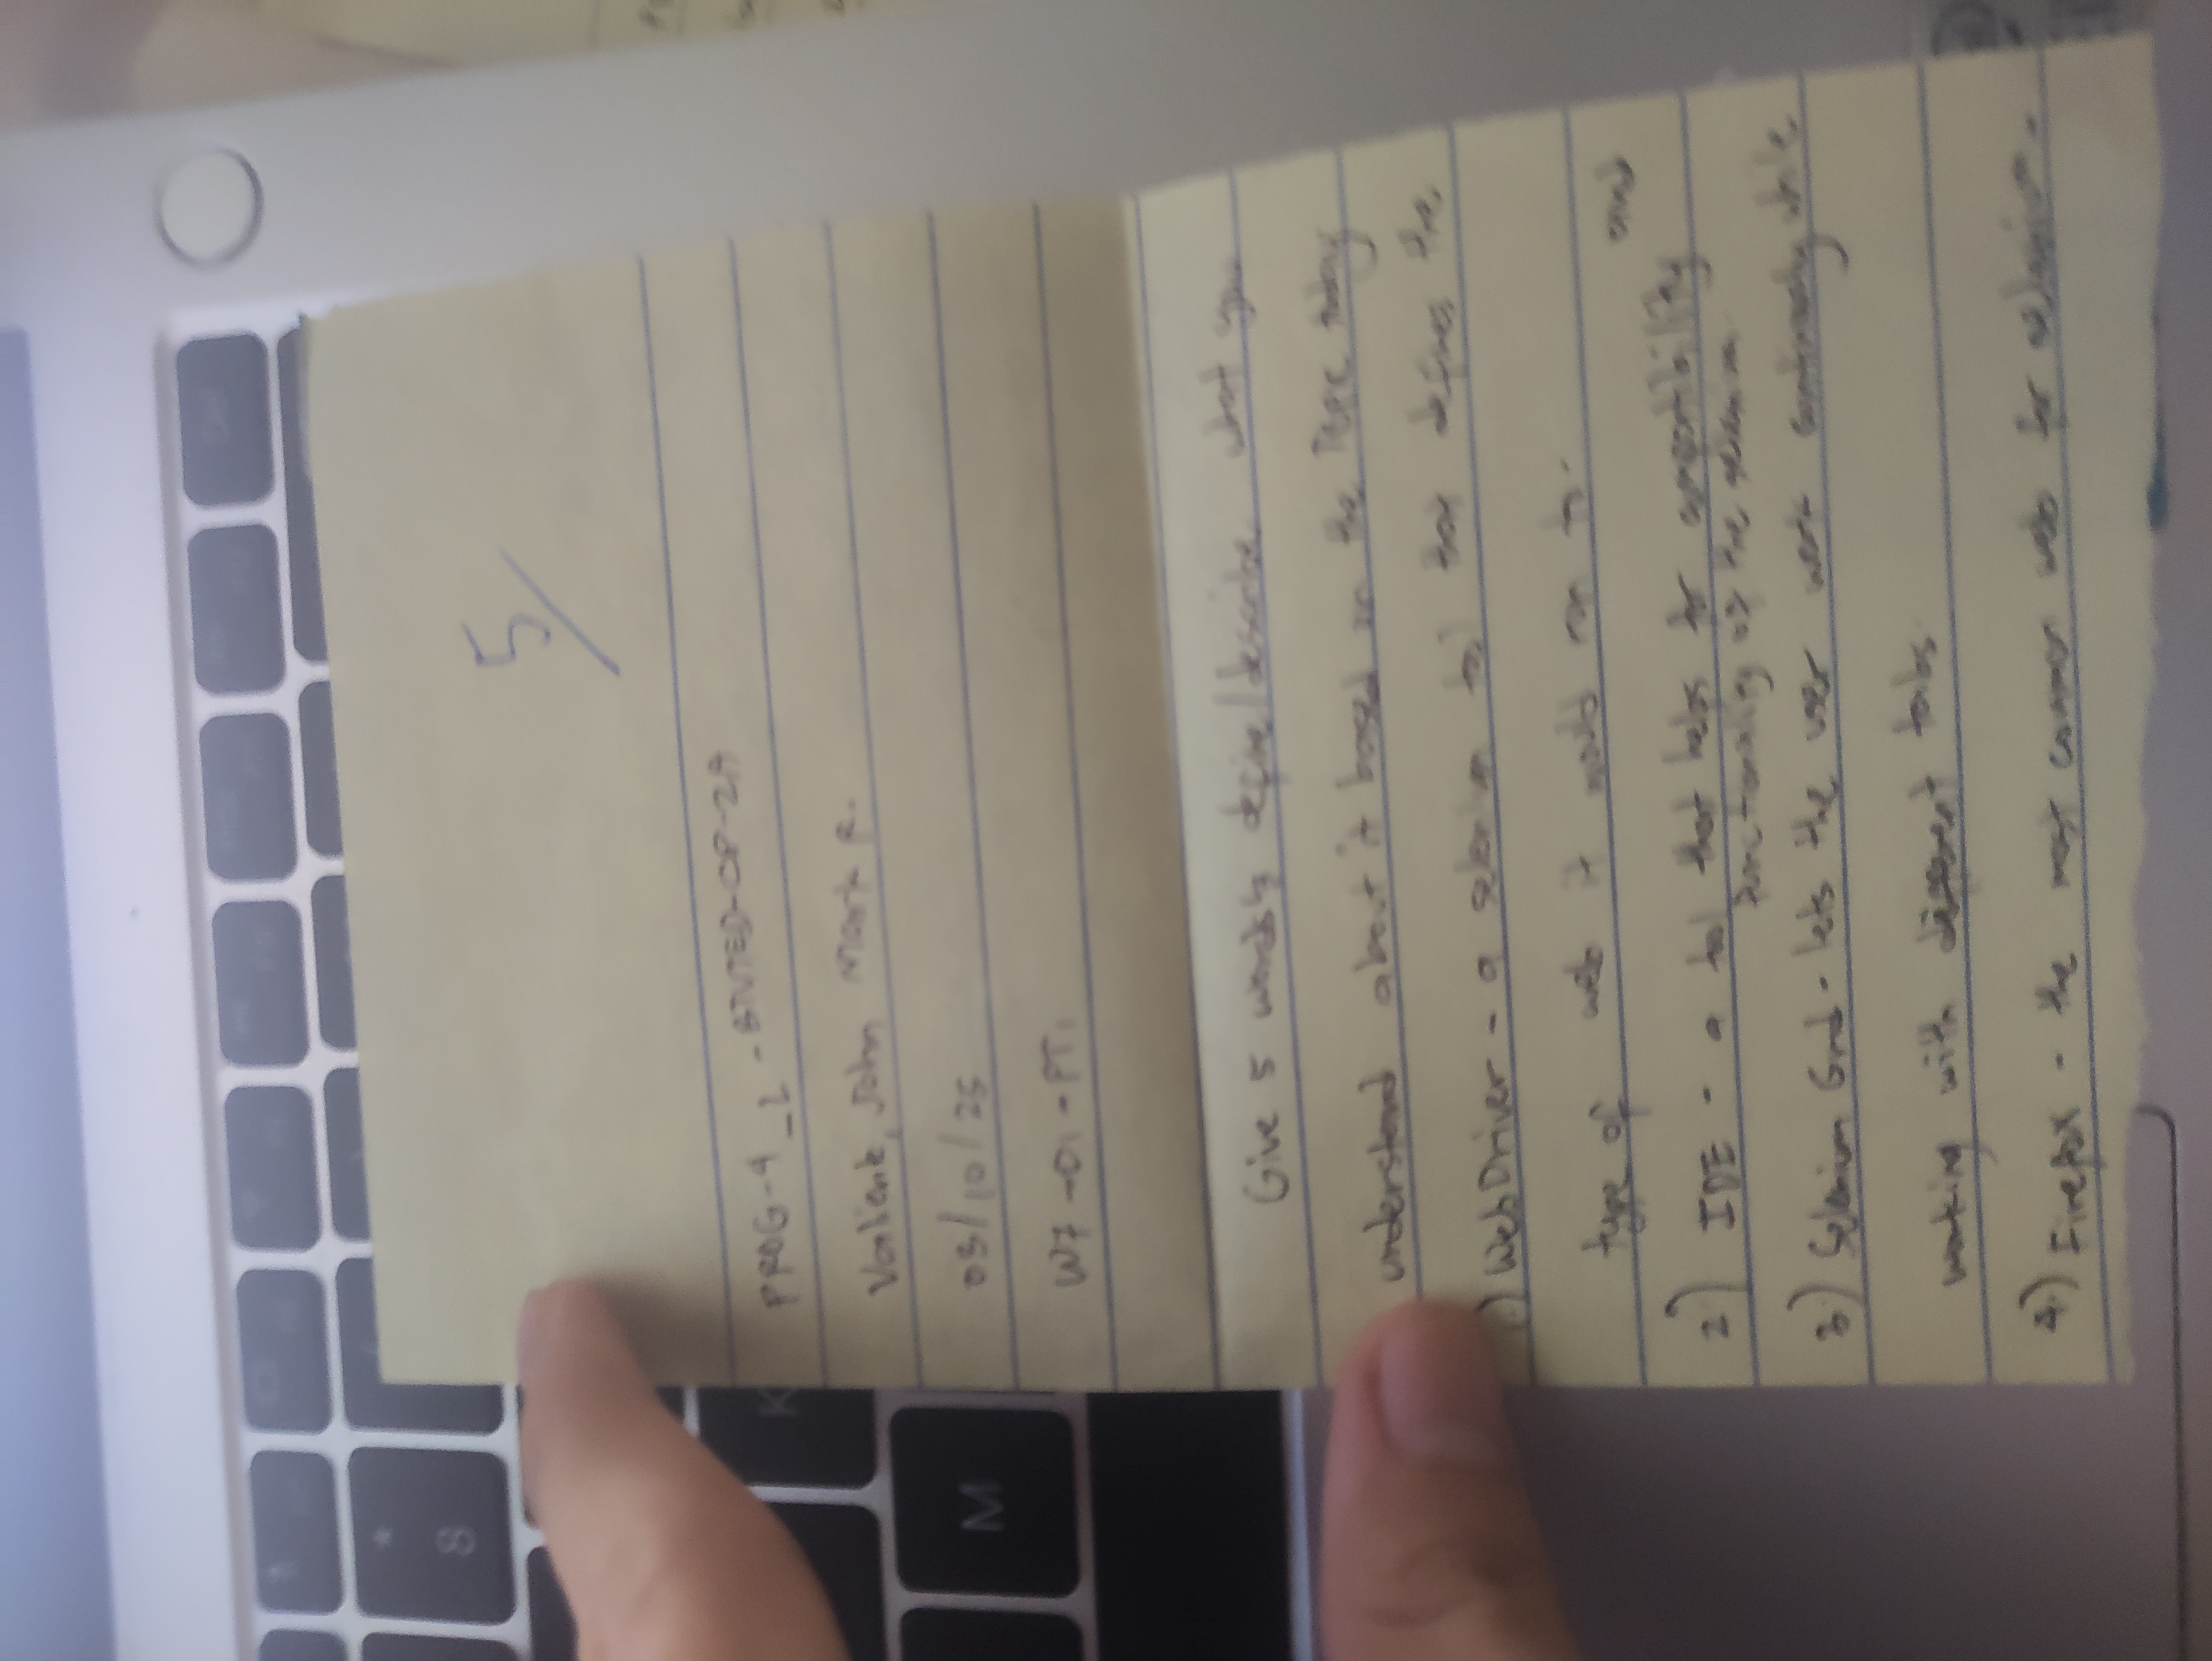 *
8
K
M
5/
PROG-4_2 - BTVTED-CP-2A
Valiente, John Mark R.
03/10/25
W7-D1-PT1
Give 5 words & define/describe what you
understand about it based on the Topic today
1.) WebDriver - a selenium tool that defines the
type of web it would run to.
2) IDE - a tool that helps for compatibility and
functionality of the selenium
3.) Selenium Grid - lets the user work continously while
working with different tabs.
4.) Firefox - the most common web for selenium.